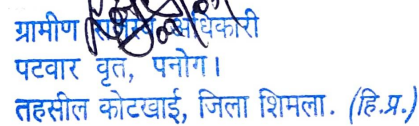 ग्रामीण राजस्व अधिकारी
पटवार वृत, पनोग।
तहसील कोटखाई, जिला शिमला. (हि.प्र.)